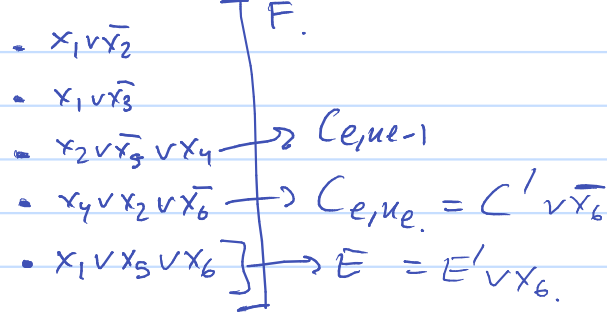 F.
• x₁ ∨ x̄₂
• x₁ ∨ x̄₃
• x₂ ∨ x̄₅ ∨ x₄ → C_{e,n_e-1}
• x₄ ∨ x₂ ∨ x̄₆ → C_{e,n_e}. = C' ∨ x̄₆
• x₁ ∨ x₅ ∨ x₆ ] → E = E' ∨ x₆.